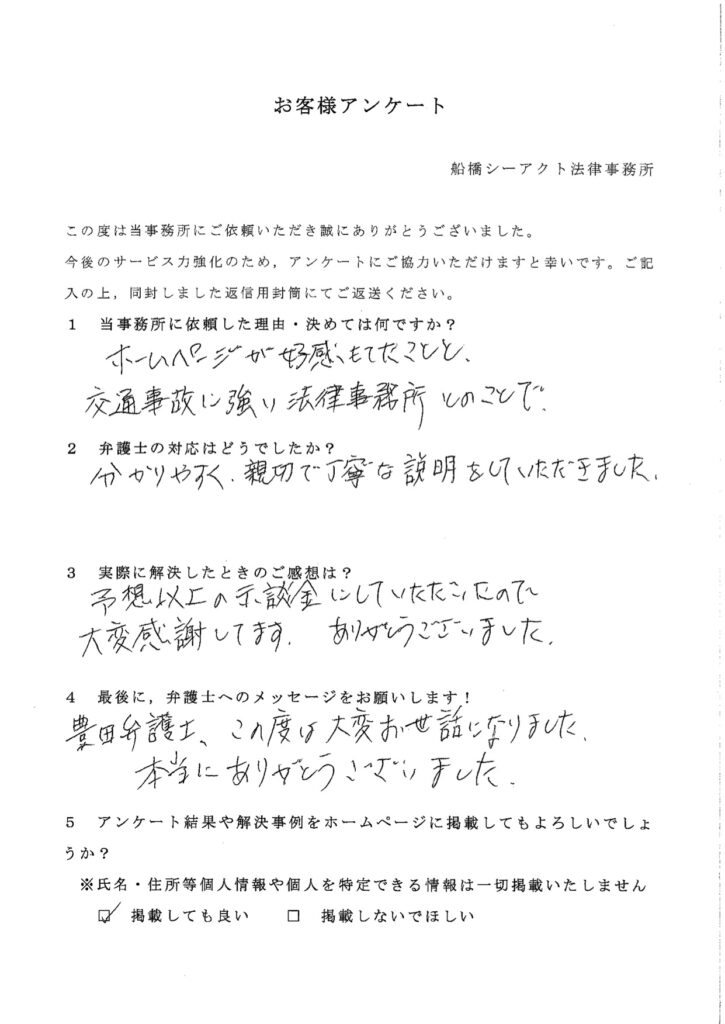 お客様アンケート
船橋シーアクト法律事務所
この度は当事務所にご依頼いただき誠にありがとうございました。
今後のサービス力強化のため，アンケートにご協力いただけますと幸いです。ご記
入の上，同封しました返信用封筒にてご返送ください。
1　当事務所に依頼した理由・決めては何ですか？
ホームページが好感、もてたことと、
交通事故に強い法律事務所とのことで、
2　弁護士の対応はどうでしたか？
分かりやすく、親切で丁寧な説明をしていただきました。
3　実際に解決したときのご感想は？
予想以上の示談金にしていただいたので
大変感謝してます。ありがとうございました。
4　最後に，弁護士へのメッセージをお願いします！
豊田弁護士、この度は大変お世話になりました。
本当にありがとうございました。
5　アンケート結果や解決事例をホームページに掲載してもよろしいでしょ
うか？
※氏名・住所等個人情報や個人を特定できる情報は一切掲載いたしません
☑ 掲載しても良い　□ 掲載しないでほしい